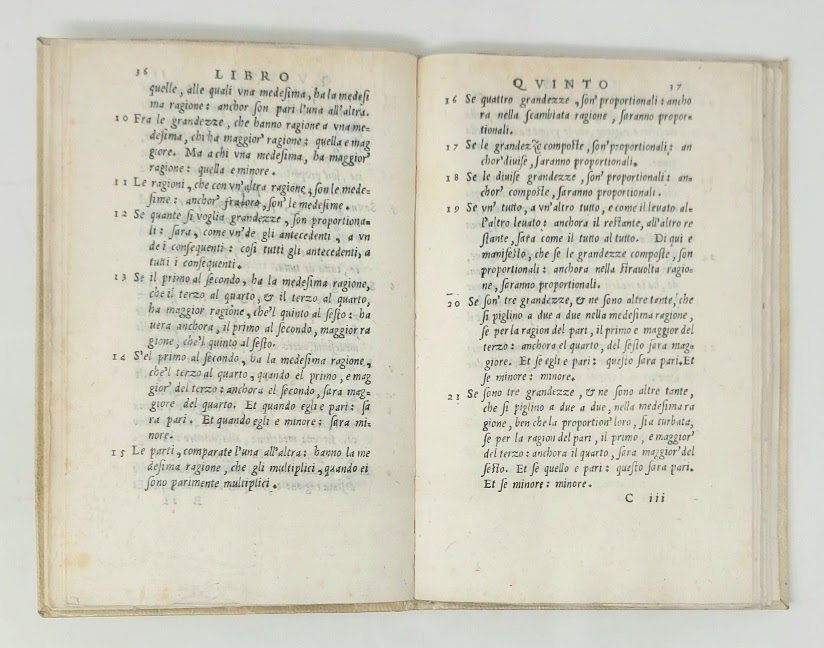 36
LIBRO
quelle, alle quali vna medesima, ha la medesi
ma ragione: anchor son pari l'una all'altra.
10 Fra le grandezze, che hanno ragione a vna me-
desima, chi ha maggior' ragione: quella e mag
giore. Ma a chi vna medesima, ha maggior'
ragione: quella e minore.
11 Le ragioni, che con vn'altra ragione, son le mede-
sime: anchor' fraloro, son' le medesime.
12 Se quante si voglia grandezze, son proportiona-
li: sara, come vn'de gli antecedenti, a vn
de i consequenti: cosi tutti gli antecedenti, a
tutti i consequenti.
13 Se il primo al secondo, ha la medesima ragione,
che il terzo al quarto, & il terzo al quarto,
ha maggior ragione, che'l quinto al sesto: ha
uera anchora, il primo al secondo, maggior ra
gione, che'l quinto al sesto.
14 S'el primo al secondo, ha la medesima ragione,
che'l terzo al quarto, quando el primo, e mag
gior' del terzo: anchora el secondo, sara mag-
giore del quarto. Et quando egli e pari: sa
ra pari. Et quando egli e minore: sara mi-
nore.
15 Le parti, comparate l'una all'altra: hanno la me
desima ragione, che gli multiplici, quando ei
sono parimente multiplici.
QVINTO
37
16 Se quattro grandezze, son' proportionali: ancho
ra nella scambiata ragione, saranno propor-
tionali.
17 Se le grandezze composte, son' proportionali: an
chor' diuise, saranno proportionali.
18 Se le diuise grandezze, son' proportionali: an-
chor' composte, saranno proportionali.
19 Se vn' tutto, a vn'altro tutto, e come il leuato al-
l'altro leuato: anchora il restante, all'altro re
stante, sara come il tutto al tutto. Di qui e
manifesto, che se le grandezze composte, son
proportionali: anchora nella strauolta ragio-
ne, saranno proportionali.
20 Se son' tre grandezze, & ne sono altre tante, che
si piglino a due a due nella medesima ragione,
se per la ragion del pari, il primo e maggior del
terzo: anchora el quarto, del sesto sara mag-
giore. Et se egli e pari: questo sara pari. Et
se minore: minore.
21 Se sono tre grandezze, & ne sono altre tante,
che si piglino a due a due, nella medesima ra
gione, ben che la proportion' loro, sia turbata,
se per la ragion del pari, il primo, e maggior'
del terzo: anchora il quarto, sara maggior' del
sesto. Et se quello e pari: questo sara pari.
Et se minore: minore.
C iii